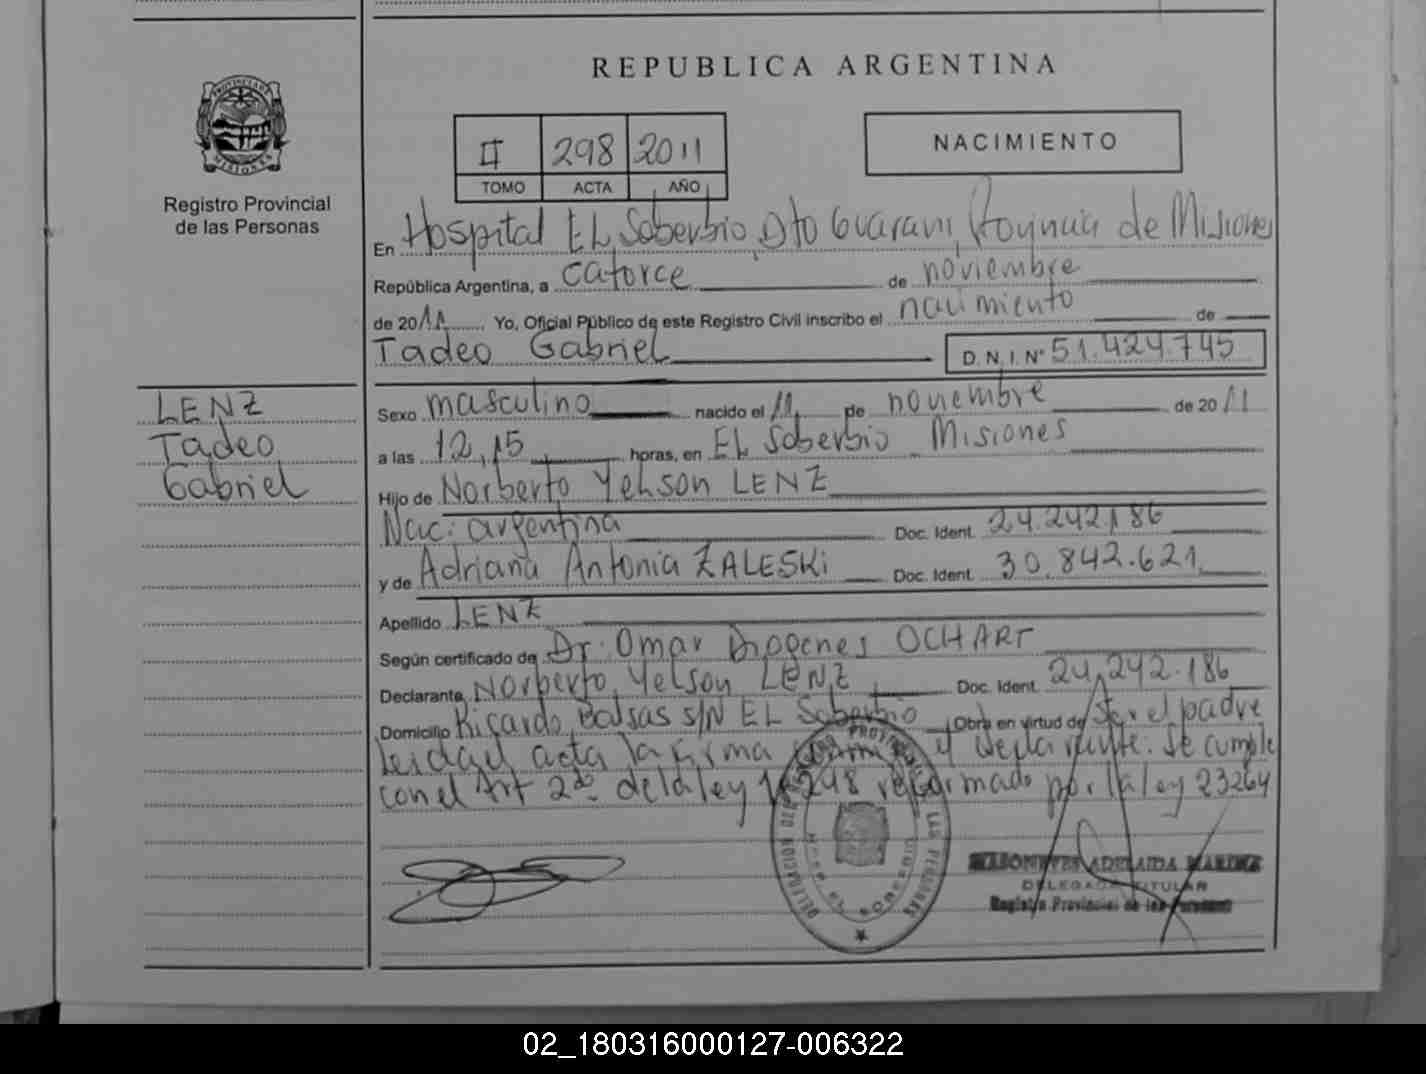 REPUBLICA ARGENTINA
PROVINCIA DE MISIONES
Registro Provincial
de las Personas
II 298 2011
TOMO ACTA AÑO
NACIMIENTO
En Hospital EL Soberbio, Dto Guarani, Provincia de Misiones
República Argentina, a catorce de noviembre
de 2011 Yo, Oficial Público de este Registro Civil inscribo el nacimiento de
Tadeo Gabriel D.N.I. N° 51.424.745
LENZ
Tadeo
Gabriel
Sexo masculino nacido el 11 de noviembre de 2011
a las 12,15 horas, en EL Soberbio Misiones
Hijo de Norberto Yelson LENZ
Nac: argentina Doc. Ident. 24.242.186
y de Adriana Antonia ZALESKi Doc. Ident. 30.842.621
Apellido LENZ
Según certificado de Dr. Omar Diogenes OCHART
Declarante Norberto Yelson LENZ Doc. Ident. 24.242.186
Domicilio Ricardo Balsas S/N EL Soberbio Obra en virtud de Ser el padre
leida el acta la firma el declarante. Se cumple
con el Art 2do de la ley 18.248 reformado por la ley 23264
DELEGACION DEL REGISTRO PROVINCIAL DE LAS PERSONAS
HOSP. EL SOBERBIO
ADELAIDA MARINA
DELEGADA TITULAR
Registro Provincial de las Personas
02_180316000127-006322